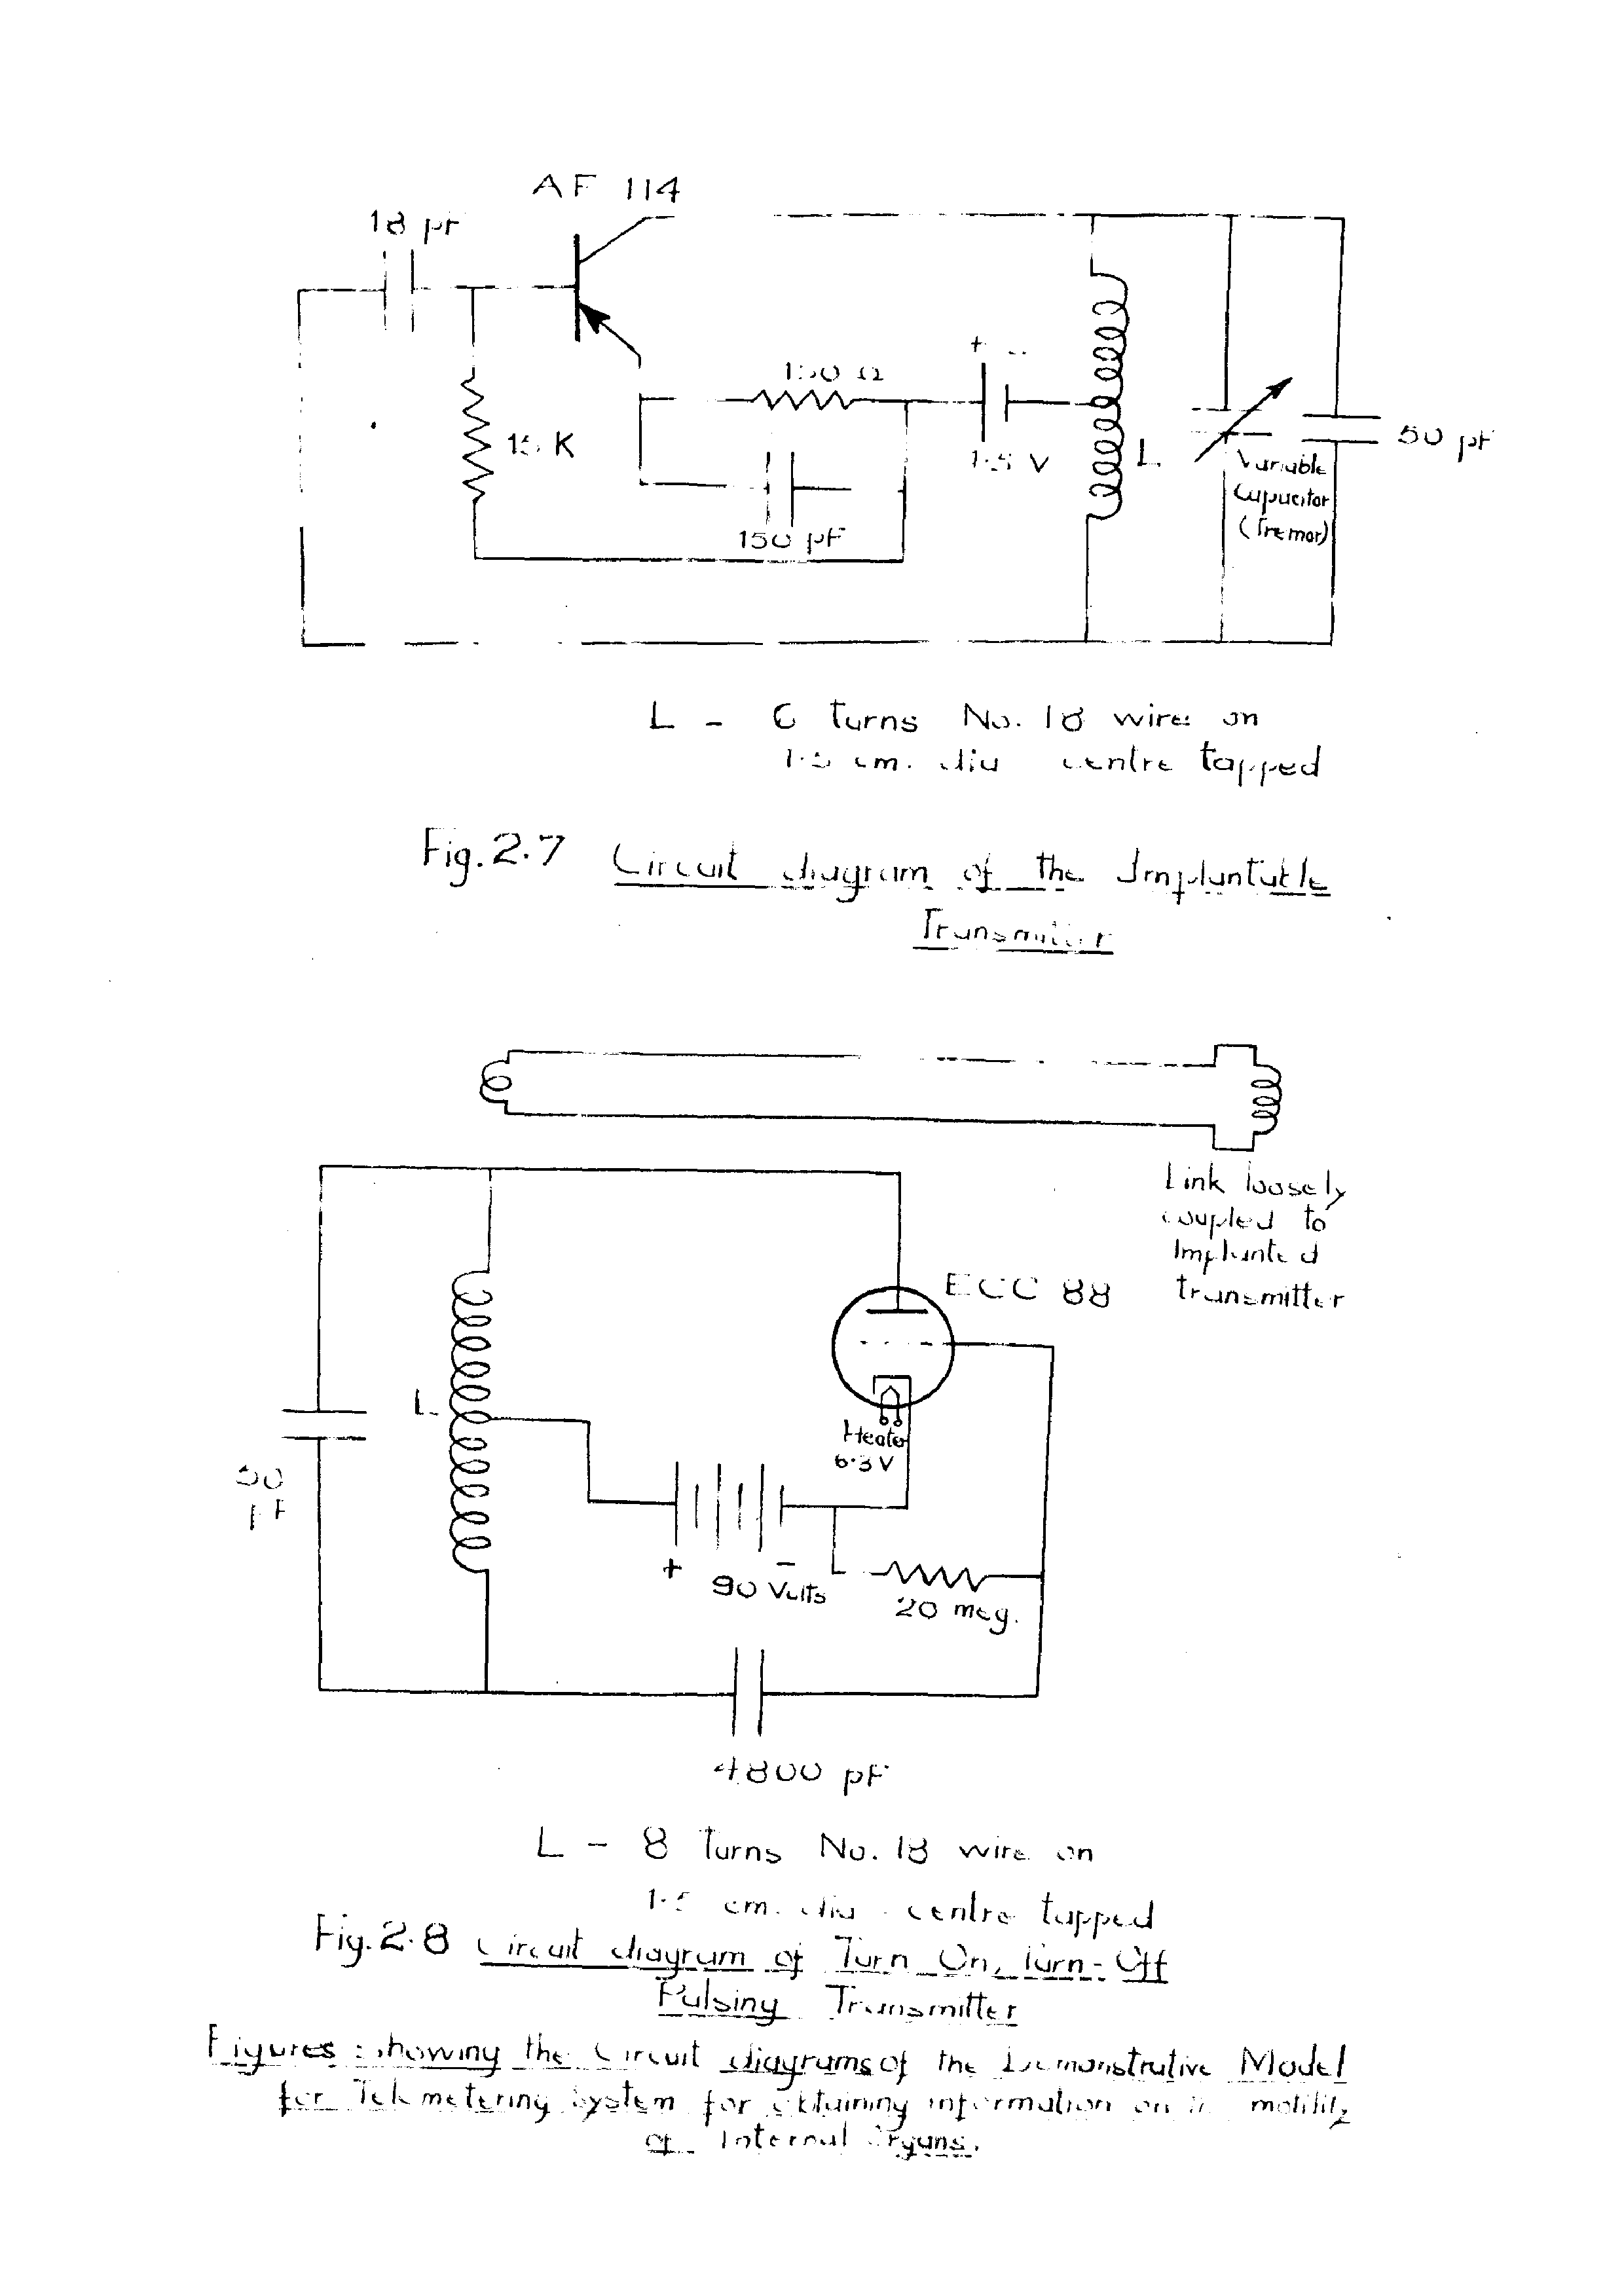 AF 114
18 pf
15 K
150 Ω
150 pF
+ -
1.5 V
L
Variable
Capacitor
(Tremor)
50 pf
L - 6 turns No. 18 wire on
1.5 cm. dia centre tapped
Fig. 2.7 Circuit diagram of the Implantable
Transmitter
Link loosely
coupled to
Implanted
transmitter
ECC 88
L
50
pF
Heater
6.3 V
+ -
90 Volts
20 meg.
4800 pF
L - 8 Turns No. 18 wire on
1.5 cm. dia - centre tapped
Fig. 2.8 Circuit diagram of Turn On, Turn-Off
Pulsing Transmitter
Figures showing the Circuit diagrams of the Demonstrative Model
for Telemetering System for obtaining information on motility
of Internal Organs.